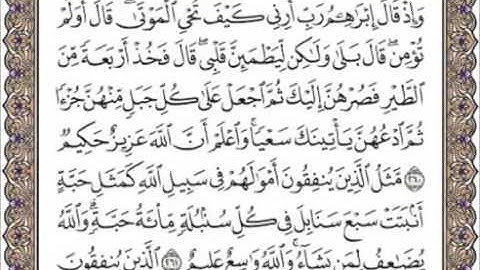 وَإِذْ قَالَ إِبْرَٰهِـۧمُ رَبِّ أَرِنِى كَيْفَ تُحْىِ ٱلْمَوْتَىٰ ۖ قَالَ أَوَلَمْ
تُؤْمِن ۖ قَالَ بَلَىٰ وَلَـٰكِن لِّيَطْمَئِنَّ قَلْبِى ۖ قَالَ فَخُذْ أَرْبَعَةً مِّنَ
ٱلطَّيْرِ فَصُرْهُنَّ إِلَيْكَ ثُمَّ ٱجْعَلْ عَلَىٰ كُلِّ جَبَلٍ مِّنْهُنَّ جُزْءًا
ثُمَّ ٱدْعُهُنَّ يَأْتِينَكَ سَعْيًا ۚ وَٱعْلَمْ أَنَّ ٱللَّهَ عَزِيزٌ حَكِيمٌ
﴿٢٦٠﴾ مَّثَلُ ٱلَّذِينَ يُنفِقُونَ أَمْوَٰلَهُمْ فِى سَبِيلِ ٱللَّهِ كَمَثَلِ حَبَّةٍ
أَنۢبَتَتْ سَبْعَ سَنَابِلَ فِى كُلِّ سُنۢبُلَةٍ مِّا۟ئَةُ حَبَّةٍ ۗ وَٱللَّهُ
يُضَـٰعِفُ لِمَن يَشَآءُ ۗ وَٱللَّهُ وَٰسِعٌ عَلِيمٌ ﴿٢٦١﴾ ٱلَّذِينَ يُنفِقُونَ